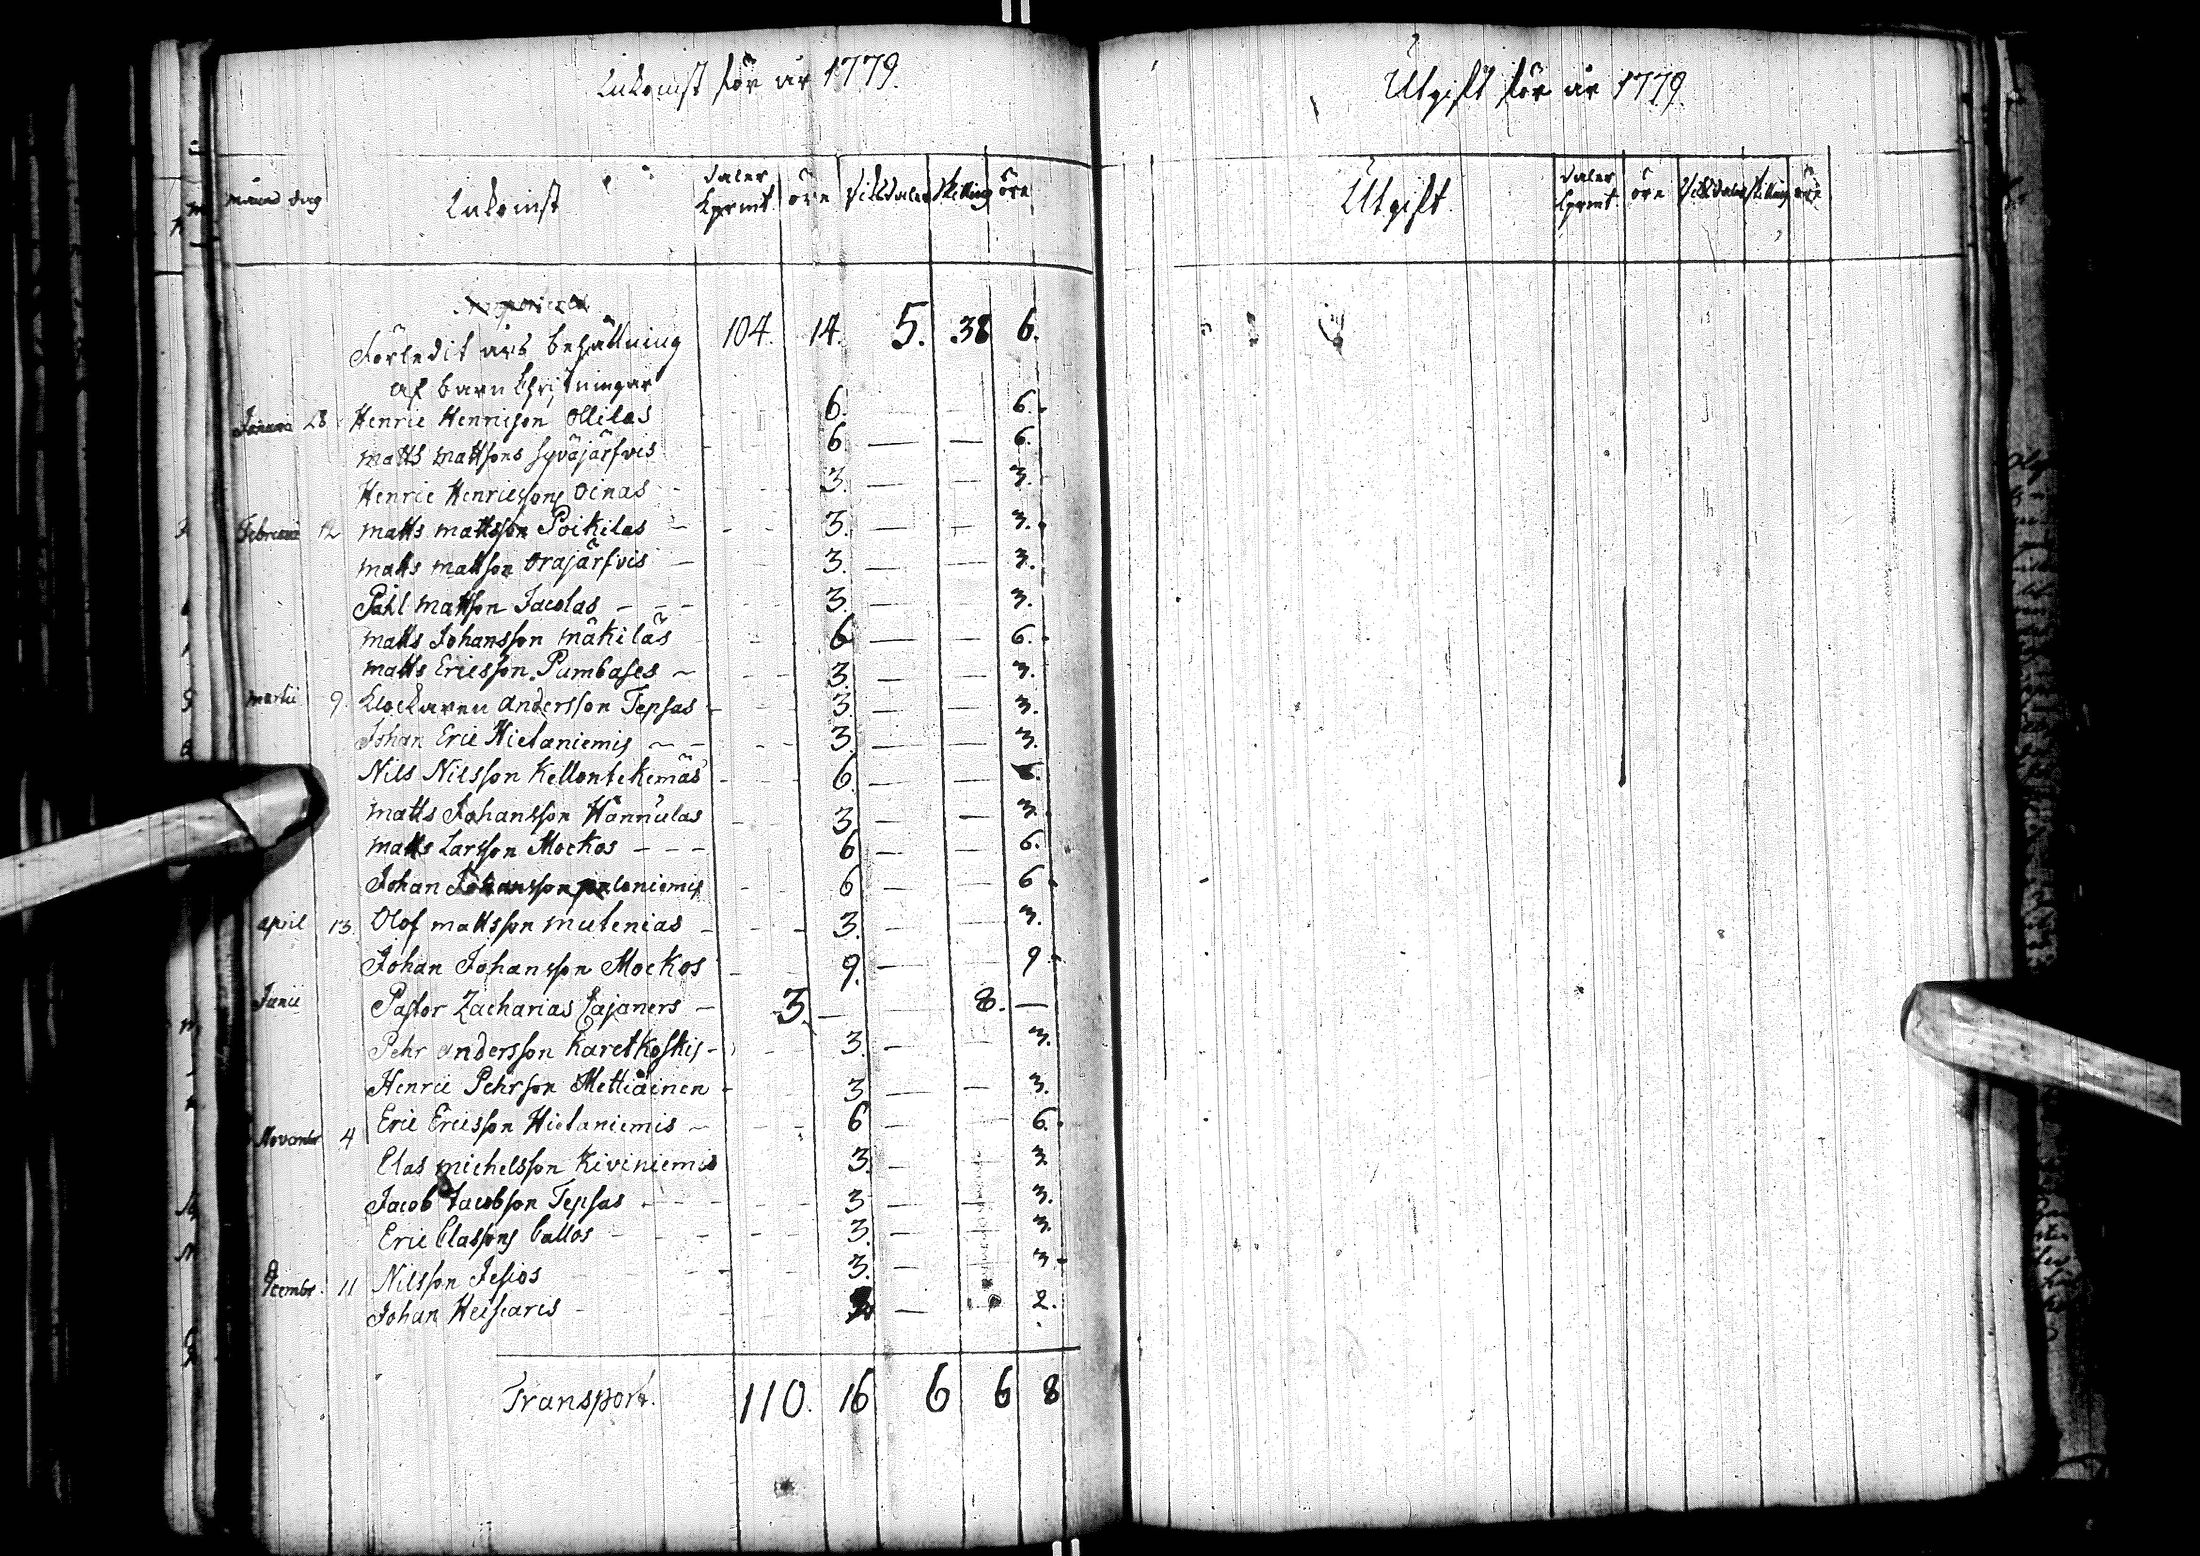 Inkomst för år 1779.
månad dag Inkomst daler kpmt öre Riksdaler skilling öre
Förledit års behållning 104. 14. 5. 38 6.
af barn Christningar
Januari 28 Henric Henricson Ollilas 6. — — 6.
Matts Mattsons Syväjärfvis 6. — — 6.
Henric Henricssons Oinas 3. — — 3.
Februari 12 Matts Mattsson Poikelas 3. — — 3.
Matts Mattson Orajärfvis 3. — — 3.
Påhl Mattson Jacolas 3. — — 3.
Matts Johansson Mäkiläs 6 — — 6.
Matts Ericsson Pumbases 3. — — 3.
Martii 9. Klockaren Andersson Tepsas 3. — — 3.
Johan Eric Hietaniemis 3. — — 3.
Nils Nilsson Kellontekemäs 6. — — 6.
Matts Johansson Hannulas 3. — — 3.
Matts Larsson Mockos 6 — — 6.
Johan Johansson 6 — — 6.
April 13. Olof Mattsson Mutenias 3. — — 3.
Johan Johansson Mockos 9. — — 9
Junii Pastor Zacharias Cajaners 3. — 8. —
Pehr Andersson Karetkoskis 3. — — 3.
Henric Pehrson Mettiäinen 3. — — 3.
November 4 Eric Ericsson Hietaniemis 6 — — 6.
Clas Michelsson Kiviniemis 3. — — 3.
Jacob Jacobson Tepsas 3. — — 3.
Eric Classons Callos 3. — — 3.
Decembr. 11 Nilsson Jesios 3. — — 3
Johan — 2.
Transport. 110. 16 6 6 8
Utgift för år 1779
Utgift daler kpmt öre Riksdaler skilling öre